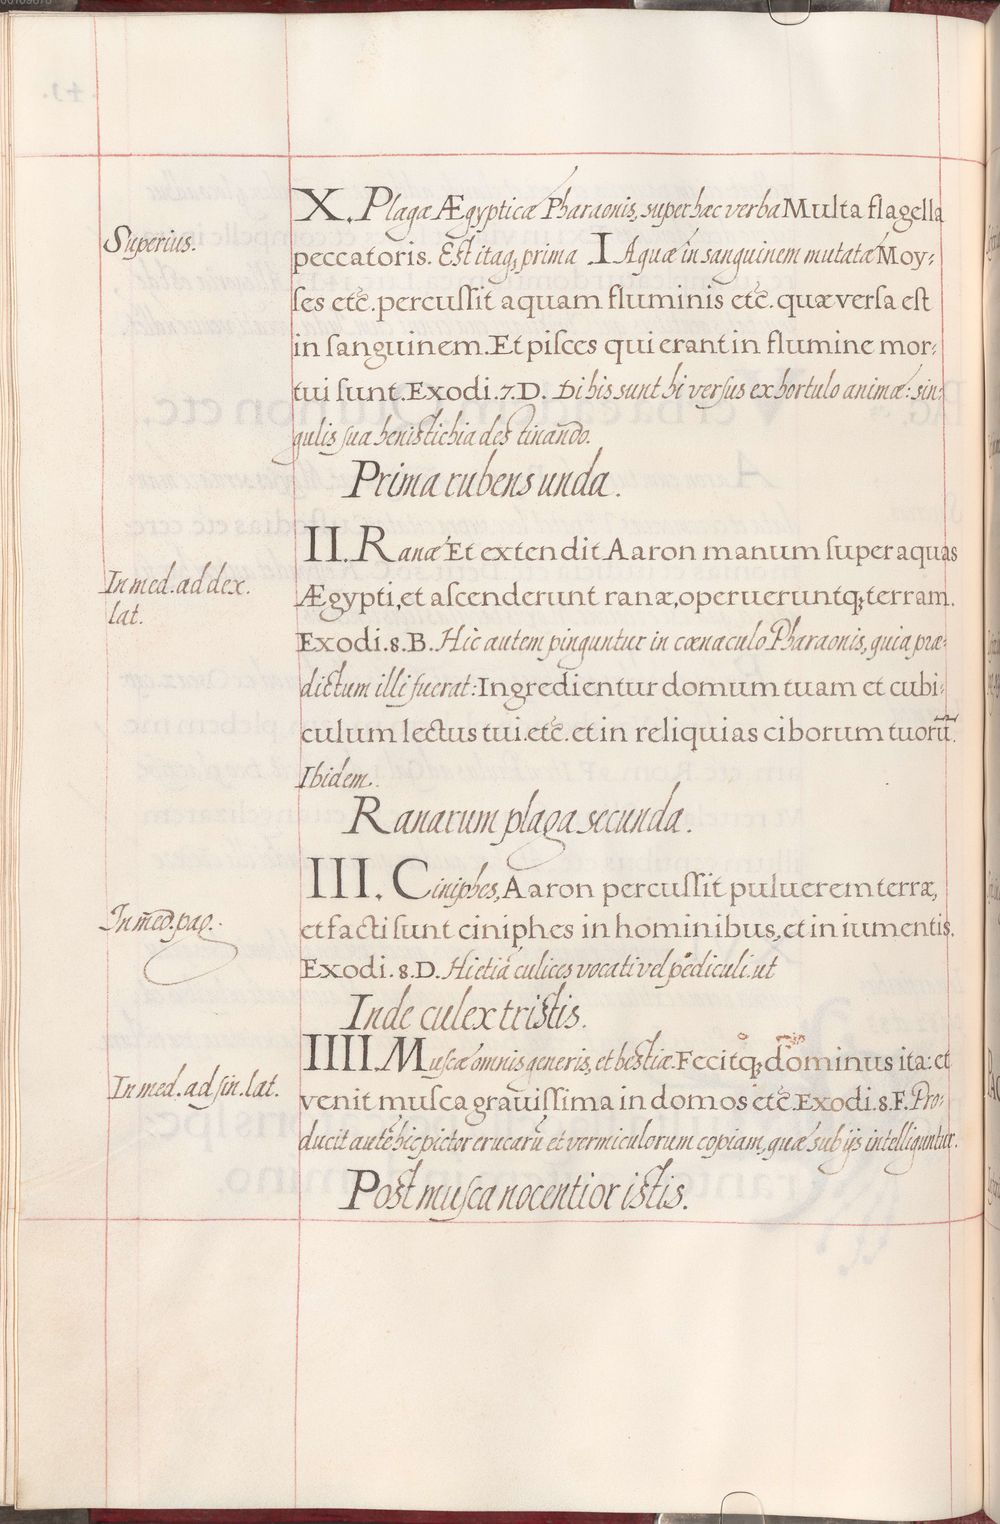 X. Plagæ Ægypticæ Pharaonis, super hæc verba Multa flagella
Superius.
peccatoris. Est itaq; prima I Aquæ in sanguinem mutatæ Moy-
ses etc̄. percussit aquam fluminis etc̄. quæ versa est
in sanguinem. Et pisces qui erant in flumine mor-
tui sunt. Exodi. 7. D. Di his sunt hi versus ex hortulo animæ: sin-
gulis sua henistichia destinando.
Prima rubens unda.
II. Ranæ Et extendit Aaron manum super aquas
In med. ad dex.
lat.
Ægypti, et ascenderunt ranæ, operueruntq; terram.
Exodi. 8. B. Hic autem pinguntur in cœnaculo Pharaonis, quia præ-
dictum illi fuerat: Ingredientur domum tuam et cubi-
culum lectus tui. etc̄. et in reliquias ciborum tuorū.
Ibidem.
Ranarum plaga secunda.
III. Ciniphes, Aaron percussit puluerem terræ,
In med. pag.
et facti sunt ciniphes in hominibus, et in iumentis.
Exodi. 8. D. Hi etiā culices vocati vel pediculi. ut
Inde culex tristis.
IIII. Muscæ omnis generis, et bestiæ. Fecitq; dominus ita: et
In med. ad sin. lat.
venit musca grauissima in domos etc̄. Exodi. 8. F. Pro-
ducit autē hic pictor erucarū et vermiculorum copiam, quæ sub ijs intelliguntur.
Post musca nocentior istis.